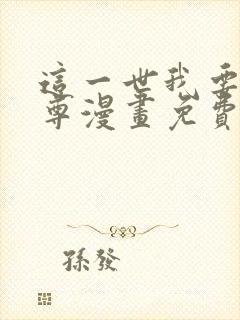 這一世我要
尊漫畫免費
孫發